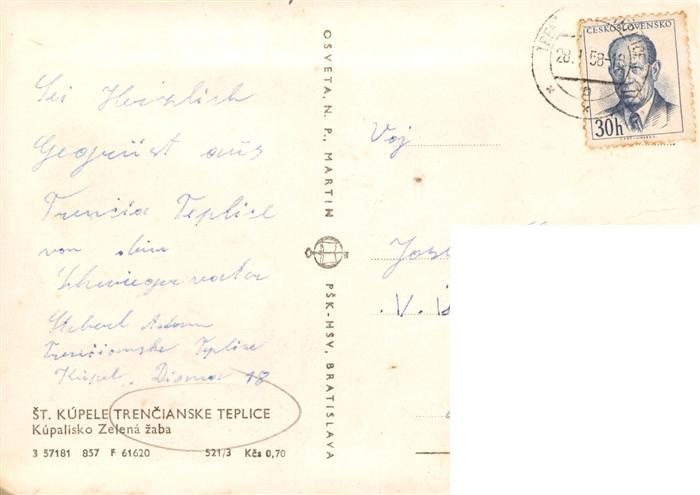 Sei Herzlich
Gegrüst aus
Trenčia Teplice
von dein
Schwiegervater
Adam
Trenčianske Teplice
Kúpel. Diana 18
ŠT. KÚPELE TRENČIANSKE TEPLICE
Kúpalisko Zelená žaba
3 57181 857 F 61620 521/3 Kčs 0,70
OSVETA, N. P., MARTIN
PŠK-HSV, BRATISLAVA
ČESKOSLOVENSKO
30h
Voj
V.